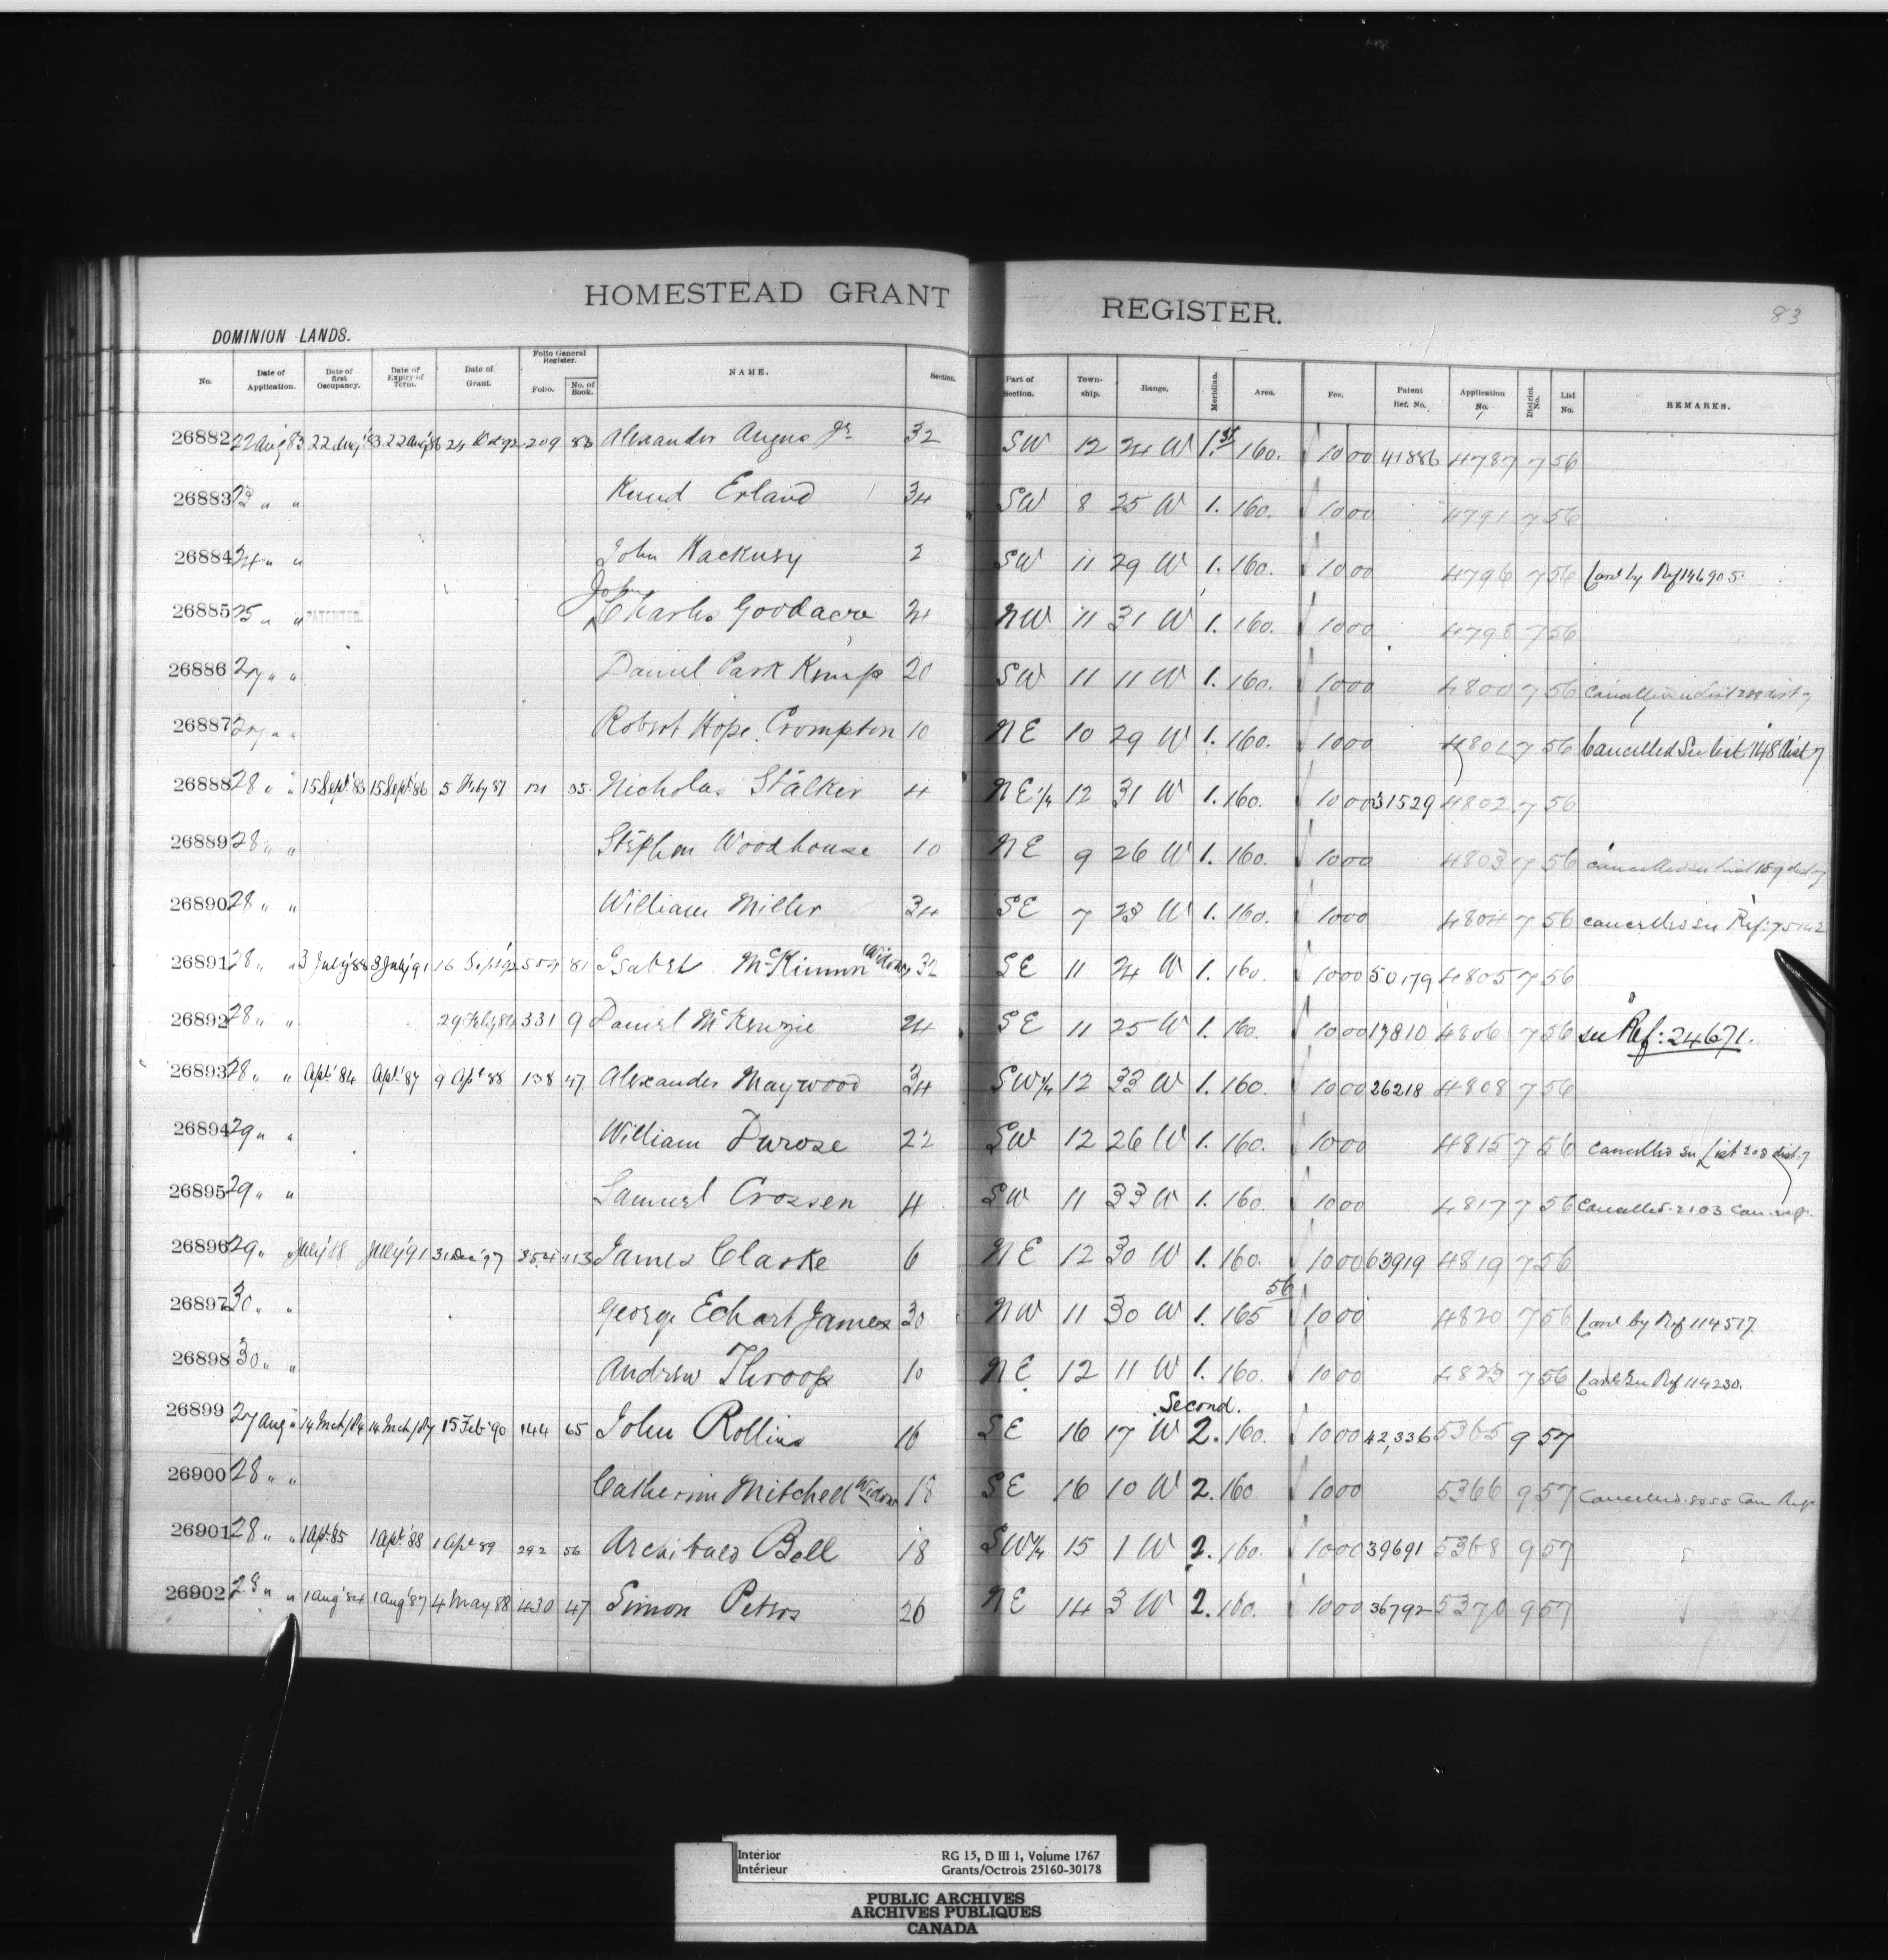 HOMESTEAD GRANT REGISTER.
83
DOMINION LANDS.
No. Date of Application. Date of first Occupancy. Date of Expiry of Term. Date of Grant. Folio General Register. Folio. No. of Book. NAME. Section. Part of Section. Town-ship. Range. Meridian. Area. Fee. Patent Ref. No. Application No. District No. List No. REMARKS.
26882 22 Aug '83 22 Aug '83 22 Aug '86 24 92 209 Alexander Angus Jr 32 SW 12 24 W 1.st 160. 10 00 41886 4787 7 56
26883 23 " " Knud Erland 34 SW 8 25 W 1. 160. 10 00 4791 7 56
26884 24 " " John 2 SW 11 29 W 1. 160. 10 00 4796 7 56 by Ref 146905.
26885 25 " " PATENTED. John Charles Goodacre 24 NW 11 31 W 1. 160. 10 00 4798 7 56
26886 27 " " Daniel Park Kemp 20 SW 11 11 W 1. 160. 10 00 4800 7 56 Cancelled see List 208 dist 7
26887 27 " " Robert Hope Crompton 10 NE 10 29 W 1. 160. 10 00 4801 7 56 Cancelled See List 148 Dist 7
26888 28 " " 15 Sept. '83 15 Sept. '86 5 Feby 87 35 Nicholas Stalker 4 NE 1/4 12 31 W 1. 160. 10 00 31529 4802 7 56
26889 28 " " Stephen Woodhouse 10 NE 9 26 W 1. 160. 10 00 4803 7 56 cancelled see List 189 dist 7
26890 28 " " William Miller 34 SE 7 23 W 1. 160. 10 00 4804 7 56 cancelled see Ref: 75142
26891 28 " " 3 July '88 3 July '91 16 Sept '92 554 81 Isabel McKinnon Widow 32 SE 11 24 W 1. 160. 10 00 50179 4805 7 56
26892 28 " " 29 Feby 84 331 9 Daniel McKenzie 24 SE 11 25 W 1. 160. 10 00 17810 4806 7 56 see Ref: 24671.
26893 28 " " Apl. '84 Apl. '87 9 Apl 88 138 47 Alexander Maywood 34 SW 1/4 12 33 W 1. 160. 10 00 26218 4808 7 56
26894 29 " " William Durose 22 SW 12 26 W 1. 160. 10 00 4815 7 56 Cancelled see List 208 dist. 7
26895 29 " " Samuel Crossen 4 SW 11 33 W 1. 160. 10 00 4817 7 56 Cancelled. 2103 Can. reg.
26896 29 " " July '88 July '91 31 Dec '97 354 113 James Clarke 6 NE 12 30 W 1. 160. 10 00 63919 4819 7 56
26897 30 " " George Echart James 30 NW 11 30 W 1. 165 56 10 00 4820 7 56 by Ref 114517.
26898 30 " " Andrew Throop 10 NE 12 11 W 1. 160. 10 00 4823 7 56 See Ref 114230.
26899 27 Aug " 14 Mch/84 14 Mch/87 15 Feb '90 144 65 John Rollins 16 SE 16 17 W Second. 2. 160. 10 00 42,336 5365 9 57
26900 28 " " Catherine Mitchell Widow 18 SE 16 10 W 2. 160. 10 00 5366 9 57 Cancelled. 8055 Can Reg.
26901 28 " " 1 Apl. 85 1 Apl. '88 1 Apl 89 292 56 Archibald Bell 18 SW 1/4 15 1 W 2. 160. 10 00 39691 5368 9 57
26902 28 " " 1 Aug '84 1 Aug '87 4 May 88 430 47 Simon Peters 26 NE 14 3 W 2. 160. 10 00 36792 5370 9 57
Interior RG 15, D III 1, Volume 1767
Intérieur Grants/Octrois 25160-30178
PUBLIC ARCHIVES
ARCHIVES PUBLIQUES
CANADA